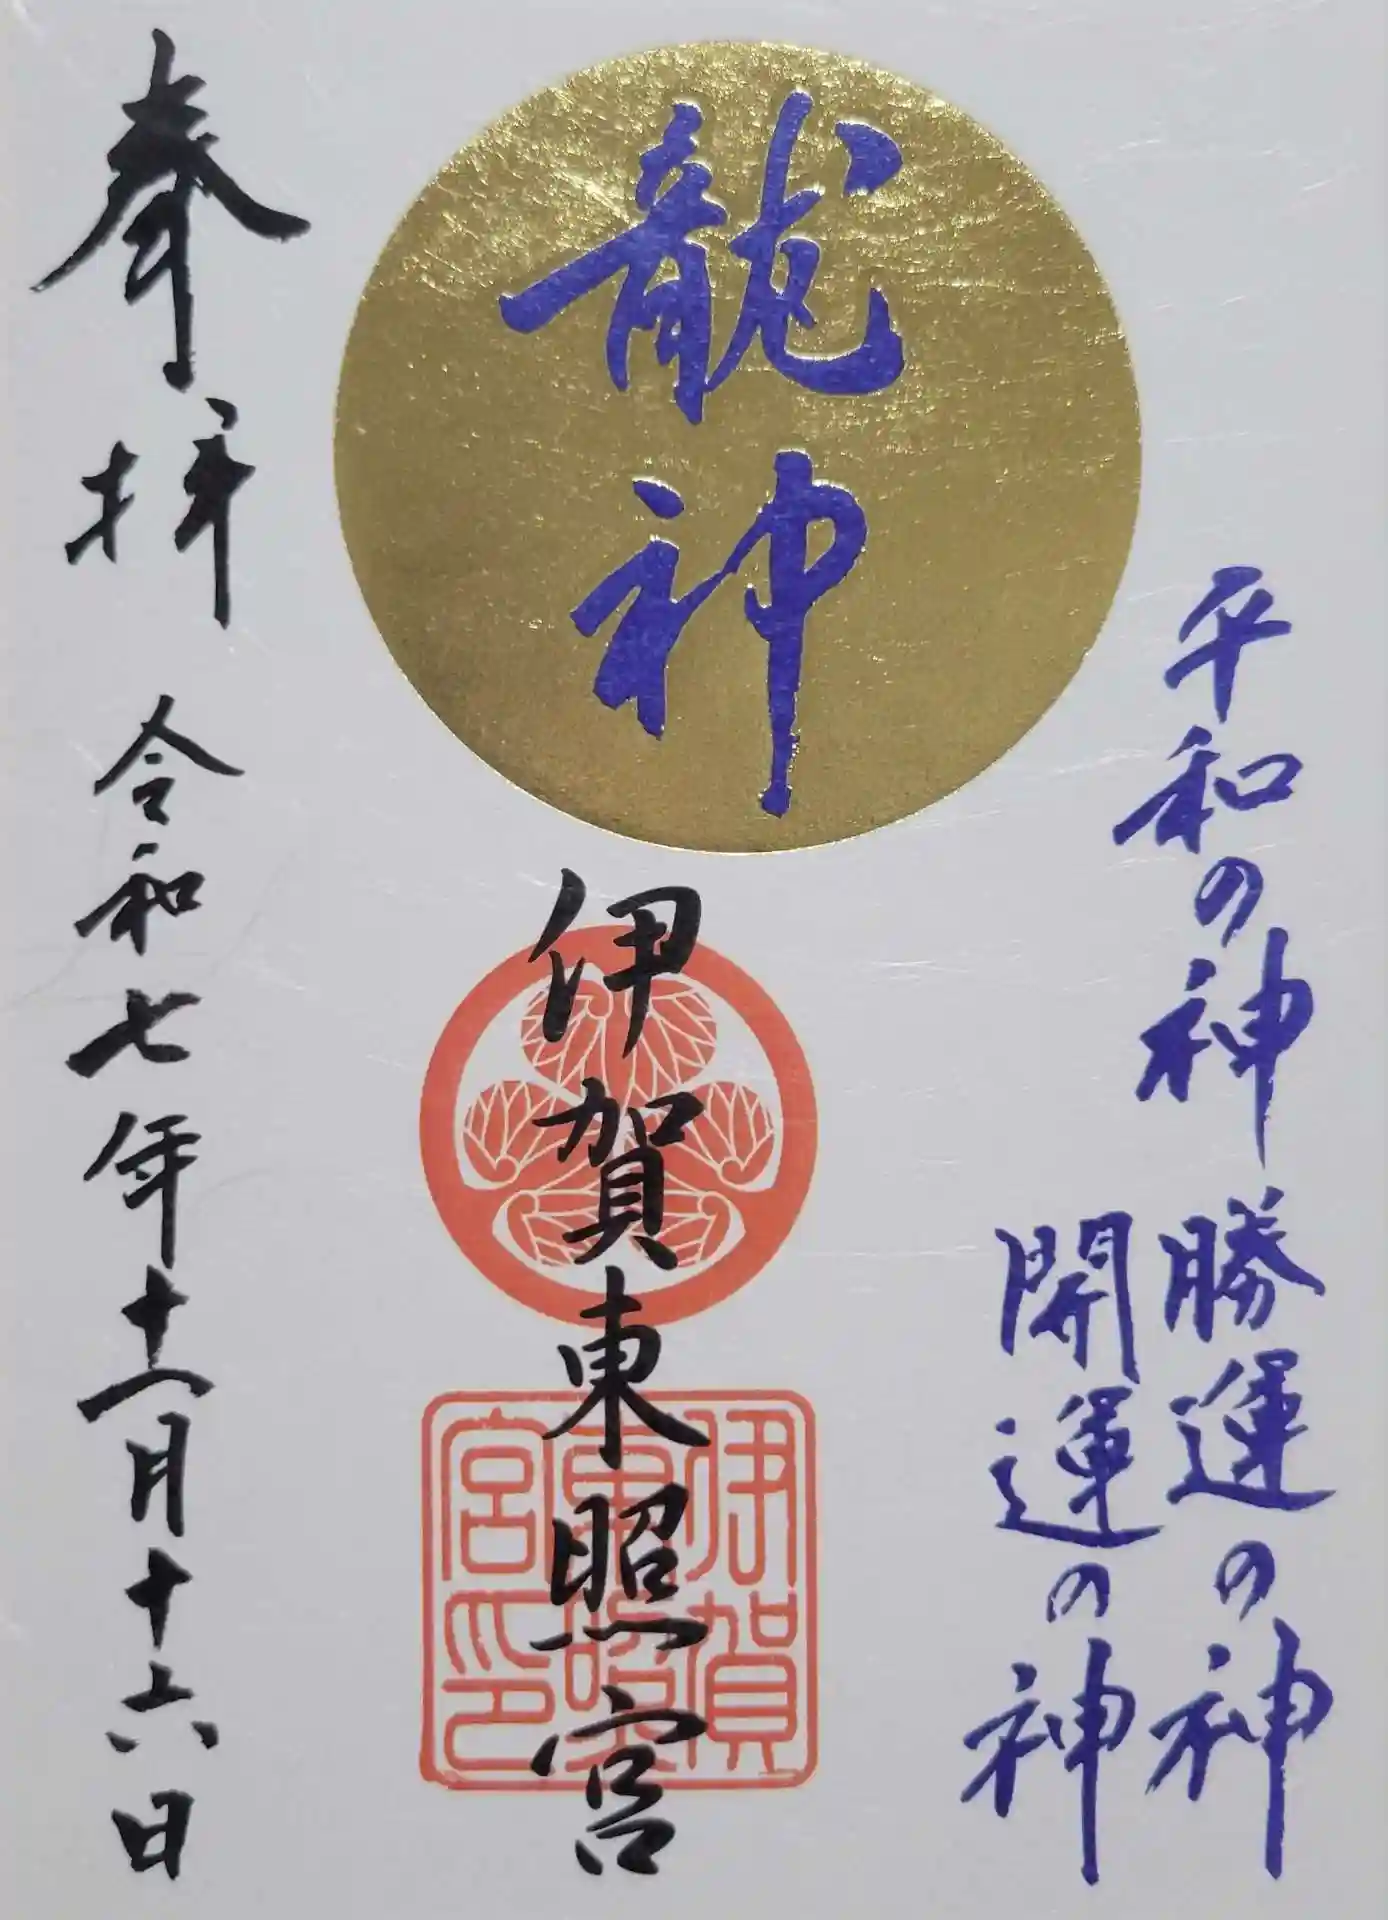 平和の神 勝運の神
開運の神
龍神
伊賀東照宮
伊賀
東照
宮印
奉拝 令和七年十一月十六日